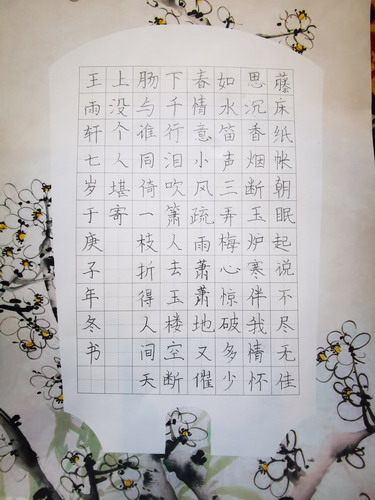 藤床纸帐朝眠起说不尽无佳
思沉香烟断玉炉寒伴我情怀
如水笛声三弄梅心惊破多少
春情意小风疏雨萧萧地又催
下千行泪吹箫人去玉楼空断
肠与谁同倚一枝折得人间天
上没个人堪寄
王雨轩七岁于庚子年冬书